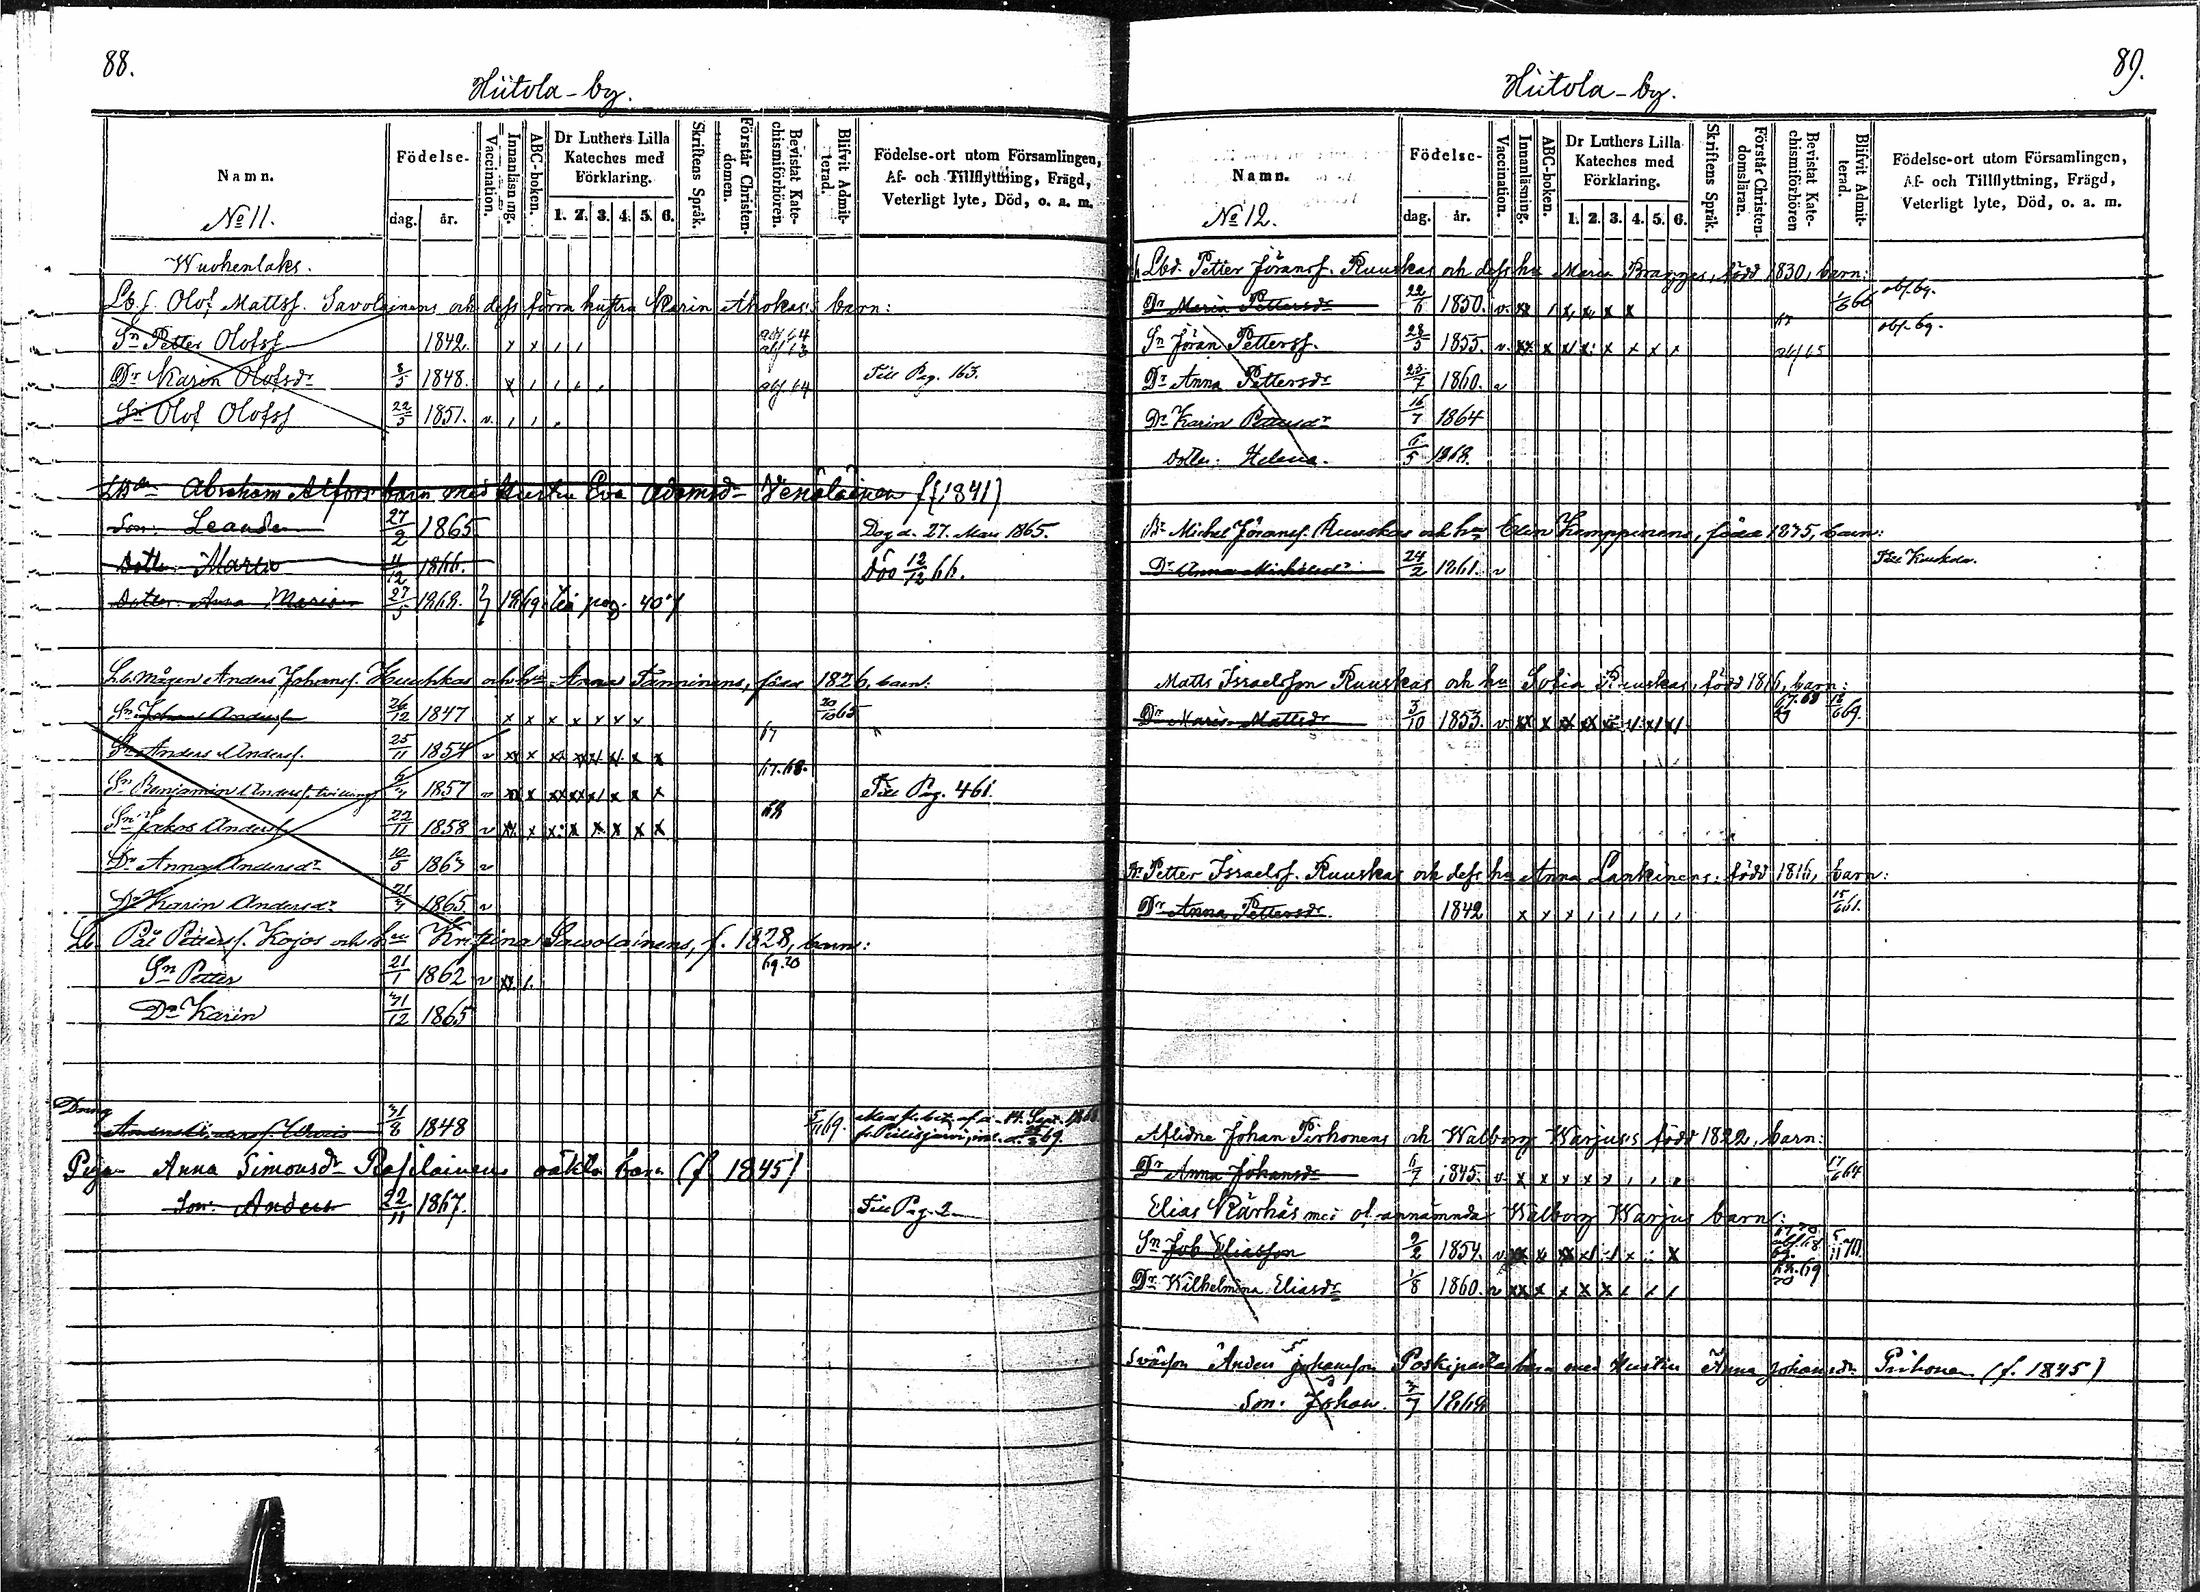 88.
Hiitola-by.
Namn.
Födelse-
dag.
år.
Vaccination.
Innanläsning.
ABC-boken.
Dr Luthers Lilla Kateches med Förklaring.
1. 2. 3. 4. 5. 6.
Skriftens Språk.
Förstår Christen-domen.
Bevistat Kate-chismiförhören.
Blifvit Admit-terad.
Födelse-ort utom Församlingen, Af- och Tillflyttning, Frägd, Veterligt lyte, Död, o. a. m.
No 11.
Wuohenlaks.
Lb. f. Olof Mattsf. Savolainens och dess förra hustru Karin Ahokas: barn:
Sn Petter Olofsf 1842. x x , , abf 64 abf 63
Dr Karin Olofsdr 8/5 1848. x , , , , abf 64 Till Pag. 163.
Sn Olof Olofsf 22/5 1851. v. , , ,
Abraham barn med Hustru Eva Adamsdr Venäläinen f (1841)
Son: Leander 27/2 1865. Dog d. 27. Mars 1865.
Dotter: Maria 11/12 1866. Död 12/12 66.
Dotter: Anna Maria 27/5 1868. 1869. till pag. 407
Lb. mågen Anders Johansf. och hu Anna Tanninens, född 1826, barn:
Sn Johan Andersf 26/12 1847 x x x x x x x 20/10 65
Sn Anders Andersf. 25/11 1854 v xx x xx xx x x x x 67
Sn Benjamin Andersf. tvilling 6/4 1857 v xx x xx xx x x x x 67. 68. Till Pag. 461.
Sn Jakob Andersf 22/11 1858 v xx x x x x x x x 68
Dr Anna Andersdr 10/5 1863 v
Dr Karin Andersdr 21/7 1865. v
Lb. Pål Pettersf. Kojos och hu Kristina Savolainens, f. 1828, barn:
Sn Petter 21/1 1862 v xx 1. 69. 70
Dr Karin 31/12 1865
Dreng
31/8 1848 5/11 69.
Piga Anna Simonsdr oäkta barn (f. 1845)
Son: Anders 22/11 1867. Till Pag. 2
89.
Hiitola-by.
Namn.
Födelse-
dag.
år.
Vaccination.
Innanläsning.
ABC-boken.
Dr Luthers Lilla Kateches med Förklaring.
1. 2. 3. 4. 5. 6.
Skriftens Språk.
Förstår Christen-domsläran.
Bevistat Kate-chismiförhören
Blifvit Admit-terad.
Födelse-ort utom Församlingen, Af- och Tillflyttning, Frägd, Veterligt lyte, Död, o. a. m.
No 12.
Lbd. Petter Jöransf. Ruuskas och dess hu Maria Bragges, född 1830, barn:
Dr Maria Pettersdr 22/6 1850. v. xx 1 x x x x 1/6 66 abf. 69.
Sn Jöran Pettersf. 28/5 1855. v. xx x x x x x x x abf 65 abf. 69.
Dr Anna Pettersdr 23/7 1860. v
Dr Karin Pettersdr 16/7 1864
Dotter: Helena. 6/5 1868.
Br. Michel Jöransf. Ruuskas och hu Elin Kemppinens, född 1875, barn:
Dr Anna Michelsdr 24/2 1861. v
Matts Israelsson Ruuskas och hu Sofia Ruuskas, född 1816, barn:
Dr Maria Mattsdr 3/10 1853. v. xx x xx xx 67. 68 69 12/6 69.
Br Petter Israelsf. Ruuskas och dess hu Anna Lankinens: född 1816, barn:
Dr Anna Pettersdr. 1842 x x x , , , , , 15/6 61.
Aflidne Johan Pirhonens och Walborg Warjus's född 1822, barn:
Dr Anna Johansdr 6/7 1845. v. x x x x x , , , 17/6 64
Elias Kärhäs med of. annämnda Walborg Warjus barn:
Sn Job Eliasson 9/2 1854. 5/11 70.
Dr Wilhelmina Eliasdr 1/8 1860. v xx x x x x , , ,
Svärson Anders Johansson barn med Hustru Anna Johansdr Pirhonen (f. 1845)
Son: Johan. 3/7 1868